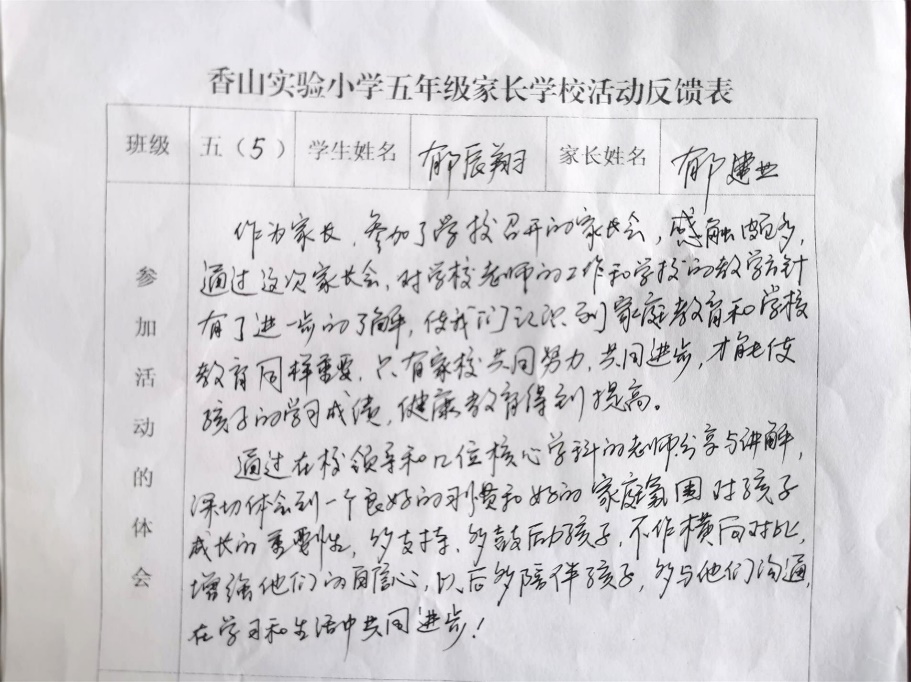 香山实验小学五年级家长学校活动反馈表
班级 五（5） 学生姓名 郁辰翔 家长姓名 郁建业
参加活动的体会
作为家长，参加了学校召开的家长会，感触颇多，
通过这次家长会，对学校老师的工作和学校的教学方针
有了进一步的了解，使我们认识到家庭教育和学校
教育同样重要，只有家校共同努力，共同进步，才能使
孩子的学习成绩，健康教育得到提高。
通过在校领导和几位核心学科的老师分享与讲解，
深切体会到一个良好的习惯和好的家庭氛围对孩子
成长的重要性，多支持、多鼓励孩子，不作横向对比，
增强他们的自信心，以后多陪伴孩子，多与他们沟通，
在学习和生活中共同进步！